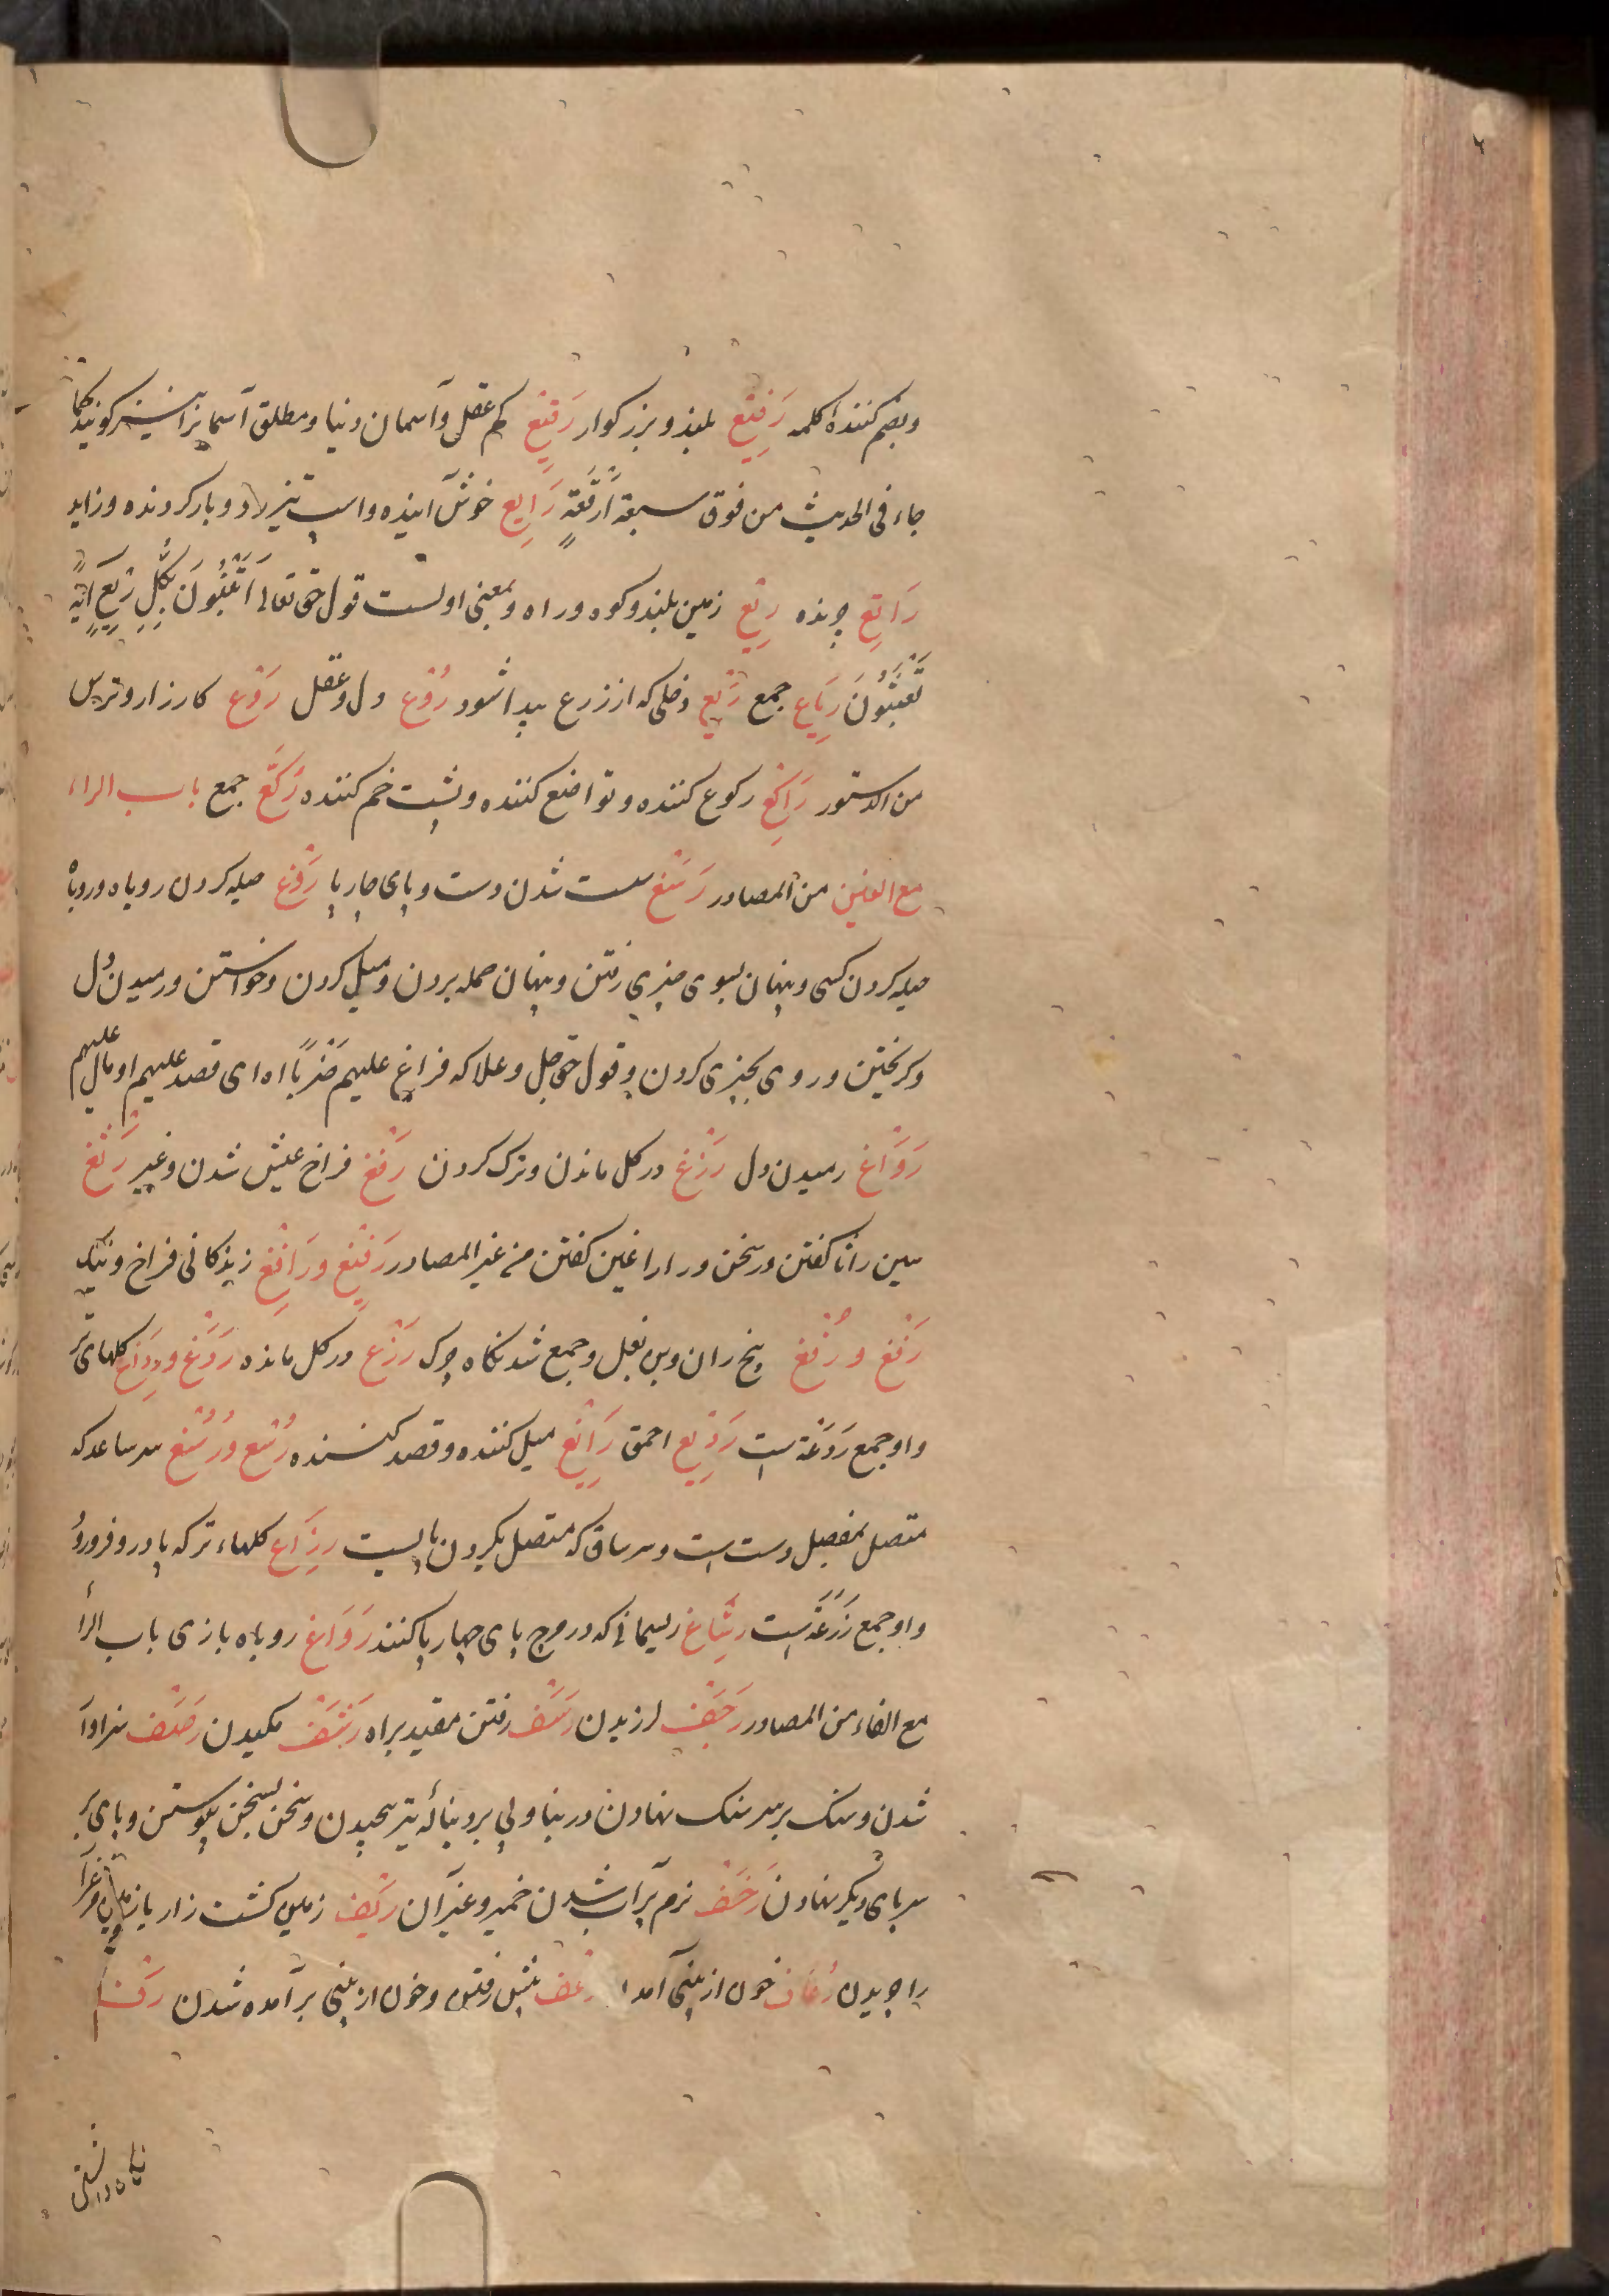 وبضم کننده کلمه رَفِیْع بلند و بزرگوار رَقِیْع کم عقل و آسمان دنیا و مطلق آسمانرا نیز گویند کما
جاء فی الحدیث من فوق سبعة اَرْقِعَةٍ رَایِع خوش آینده و اسپ تیز رو و بار گردنده و زاید
رَاتِع چرنده رِیْع زمین بلند و کوه و راه و بمعنی اولست قول حق تعالی اَتَبْنُوْنَ بِکُلِّ رِیْعٍ اٰیَةً
تَعْبَثُوْنَ رِیَاع جمع رَیْع دخلی که از زرع پیدا شود رُوْع دل و عقل رَوْع کارزار و ترس
من الدستور رَاکِعْ رکوع کننده و تواضع کننده و پشت خم کننده رُکَّعْ جمع باب الراء
مع الغین من المصادر رَسْغ سست شدن دست و پای چارپا رَوْغ حیله کردن روباه و روباه
حیله کردن کسی و پنهان بسوی چیزی رفتن و پنهان حمله بردن و میل کردن و خواستن و رمیدن دل
و گریختن و روی بچیزی کردن و قول حق جل و علا که فراغ علیهم ضَرْبًا اه ای قصد علیهم او مال علیهم
رَوَاغ رمیدن دل رَزْغ در گل ماندن و ترک کردن رَفْغ فراخ عیش شدن و غیر رَثْغ
سین را ثا گفتن در سخن و را را غین گفتن من غیر المصادر رَفِیْغ و رَافِغ زندگانی فراخ و نیک
رَفْغ و رُفْغ بیخ ران و بن بغل و جمع شدنگاه چرک رَزْغ در گل مانده رَدَغ و رِدَاغ گلهای تر
و او جمع رَدَغَة است رَدِیْغ احمق رَایِغْ میل کننده و قصد کننده رُسْغ و رُسُغ سر ساعد که
متصل بمفصل دست است و سر ساق که متصل بگردن پایست رِزَاغ گلهاء تر که پا در و فرورود
و او جمع رَزَغَة است رِسَاغ ریسمانی که در مچ پای چهارپا کنند رَوَاغ روباه بازی باب الرا
مع الفاء من المصادر رَجْف لرزیدن رَسْف رفتن مقید براه رَشْف مکیدن رَصْف سزاوار
شدن و سنگ بر سر سنگ نهادن در بنا و پی برو بناله تیر پیچیدن و سخن بسخن پیوستن و پای بر
سر پای دیگر نهادن رَخْف نرم پر آب شدن خمیر و غیر آن رَیْف زمین کشت زار یا
را چریدن رُعَاف خون از بینی آمدن رَعْف پیش رفتن و خون از بینی برآمده شدن
نگاه داشتن